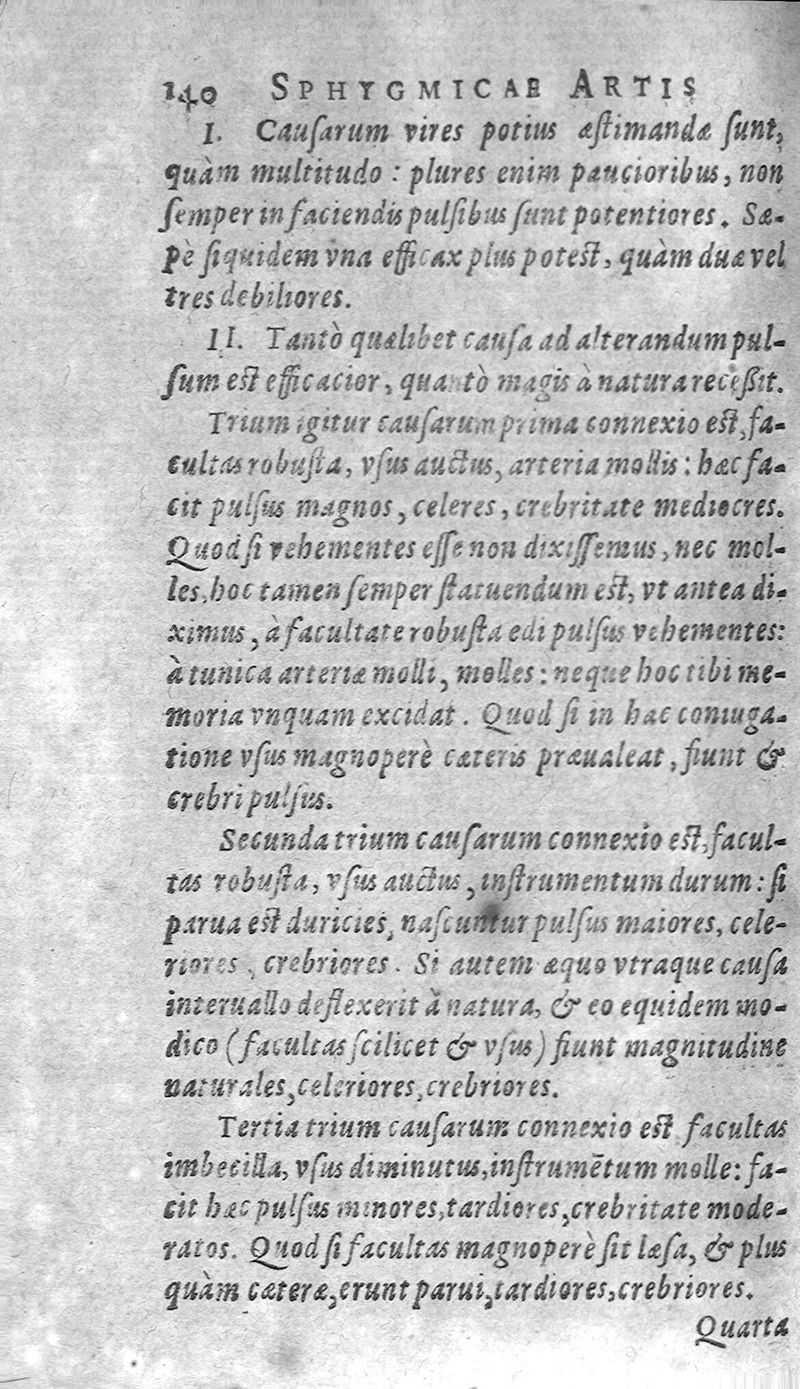 140 SPHYGMICAE ARTIS
I. Cauſarum vires potius æſtimandæ ſunt,
quàm multitudo : plures enim paucioribus, non
ſemper in faciendis pulſibus ſunt potentiores. Sæ-
pè ſiquidem vna efficax plus potest, quàm duæ vel
tres debiliores.
II. Tantò quælibet cauſa ad alterandum pul-
ſum est efficacior, quantò magis à natura receßit.
Trium igitur cauſarum prima connexio est, fa-
cultas robuſta, vſus auctus, arteria mollis : hæc fa-
cit pulſus magnos, celeres, crebritate mediocres.
Quod ſi vehementes eſſe non dixiſſemus, nec mol-
les, hoc tamen ſemper ſtatuendum est, vt antea di-
ximus, à facultate robuſta edi pulſus vehementes:
à tunica arteriæ molli, molles : neque hoc tibi me-
moria vnquam excidat. Quod ſi in hac coniuga-
tione vſus magnoperè cæteris præualeat, fiunt &
crebri pulſus.
Secunda trium cauſarum connexio est, facul-
tas robuſta, vſus auctus, inſtrumentum durum : ſi
parua est duricies, naſcuntur pulſus maiores, cele-
riores, crebriores. Si autem æquo vtraque cauſa
interuallo deflexerit à natura, & eo equidem mo-
dico (facultas ſcilicet & vſus) fiunt magnitudine
naturales, celeriores, crebriores.
Tertia trium cauſarum connexio est facultas
imbecilla, vſus diminutus, inſtrumẽtum molle: fa-
cit hæc pulſus minores, tardiores, crebritate mode-
ratos. Quod ſi facultas magnoperè ſit læſa, & plus
quàm cæteræ, erunt parui, tardiores, crebriores.
Quarta